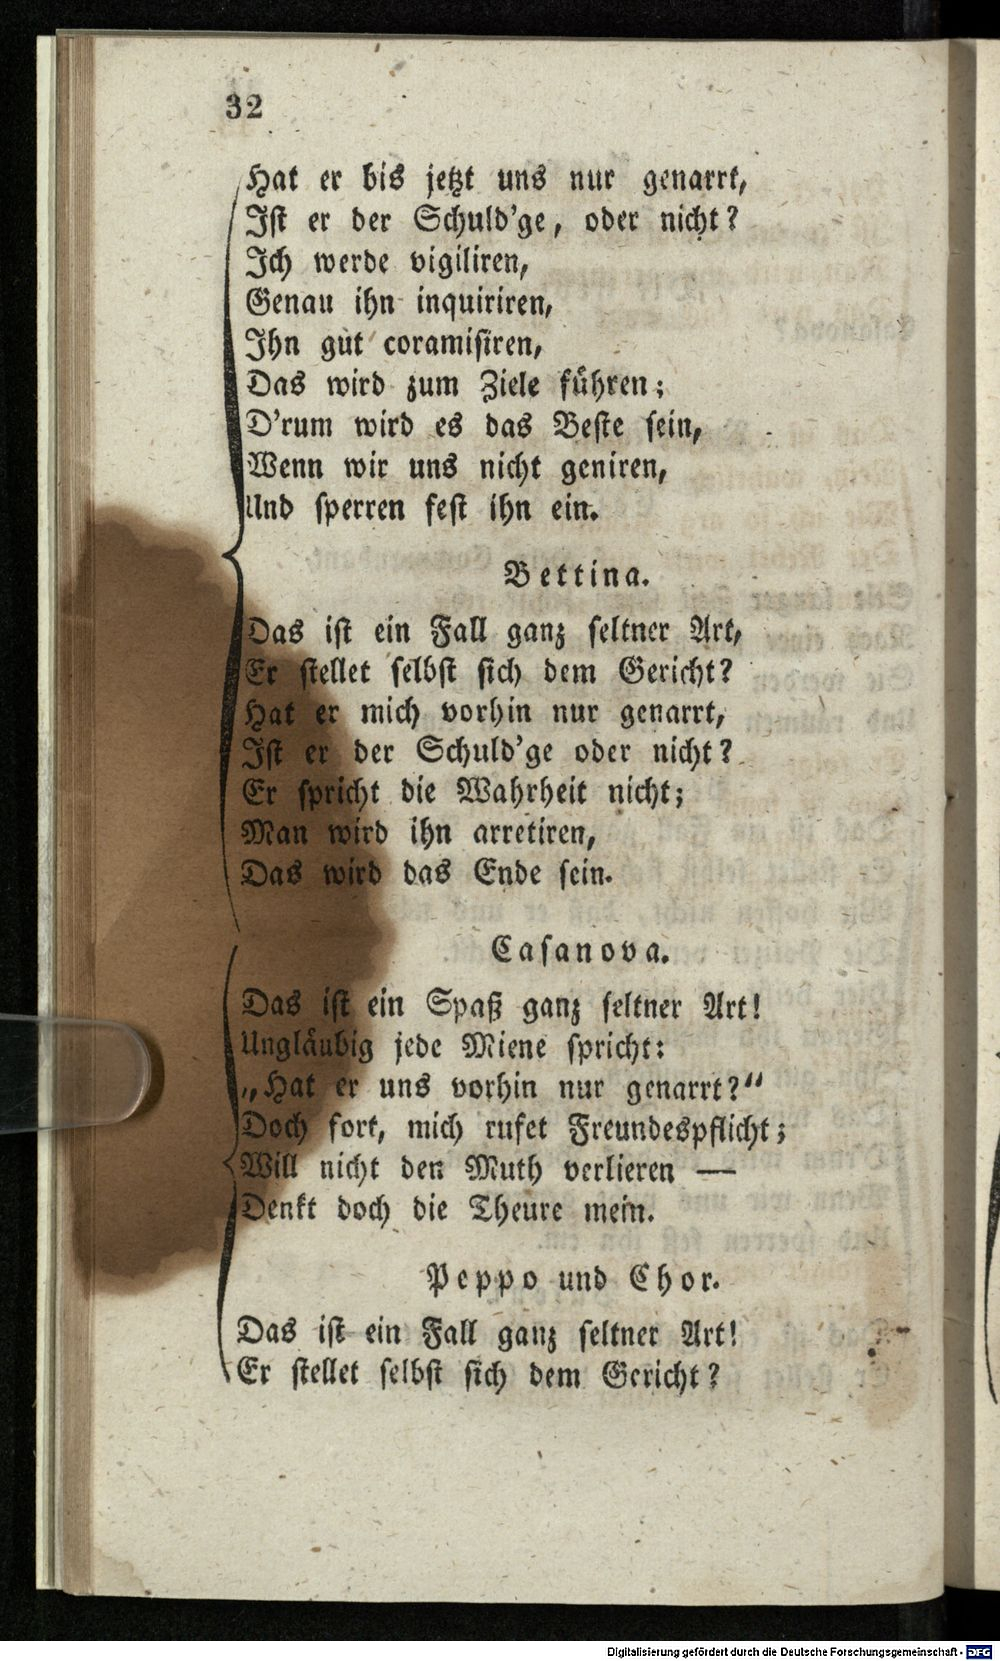 32
Hat er bis jetzt uns nur genarrt,
Ist er der Schuld'ge, oder nicht?
Ich werde vigiliren,
Genau ihn inquiriren,
Ihn gut coramisiren,
Das wird zum Ziele führen;
D'rum wird es das Beste sein,
Wenn wir uns nicht geniren,
Und sperren fest ihn ein.
Bettina.
Das ist ein Fall ganz seltner Art,
Er stellet selbst sich dem Gericht?
Hat er mich vorhin nur genarrt,
Ist er der Schuld'ge oder nicht?
Er spricht die Wahrheit nicht;
Man wird ihn arretiren,
Das wird das Ende sein.
Casanova.
Das ist ein Spaß ganz seltner Art!
Ungläubig jede Miene spricht:
„Hat er uns vorhin nur genarrt?“
Doch fort, mich rufet Freundespflicht;
Will nicht den Muth verlieren —
Denkt doch die Theure mein.
Peppo und Chor.
Das ist ein Fall ganz seltner Art!
Er stellet selbst sich dem Gericht?
Digitalisierung gefördert durch die Deutsche Forschungsgemeinschaft - DFG